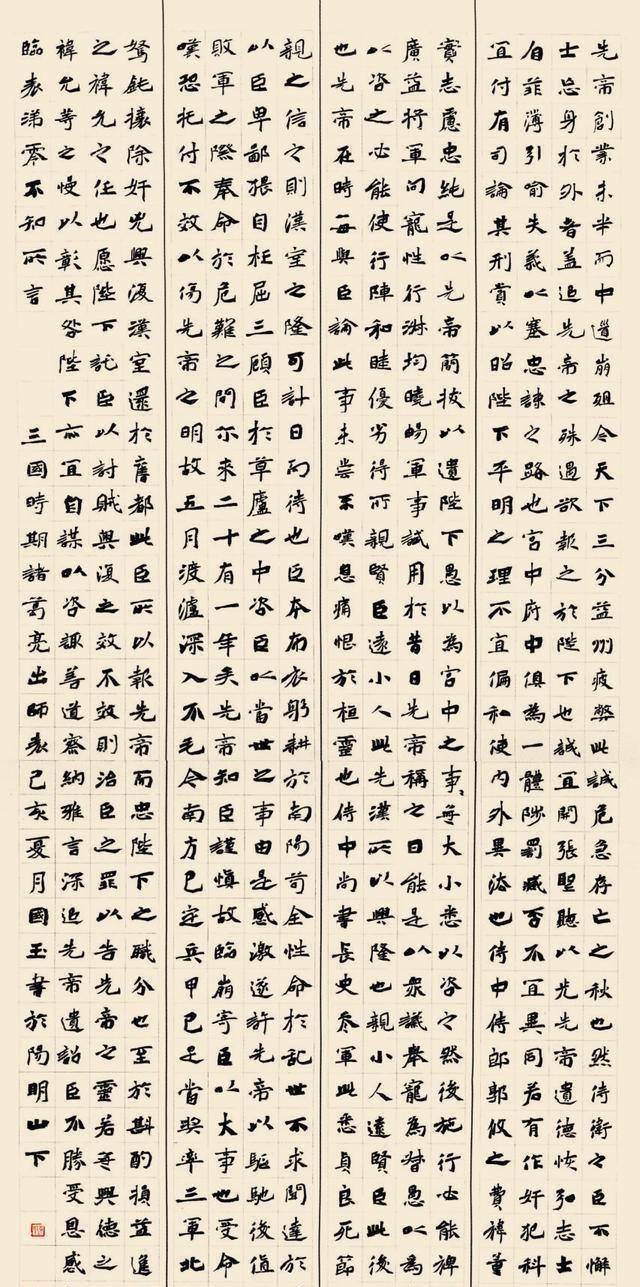 先帝創業未半而中道崩殂今天下三分益州疲弊此誠危急存亡之秋也然侍衛之臣不懈
士忘身於外者蓋追先帝之殊遇欲報之於陛下也誠宜開張聖聽以光先帝遺德恢弘志士
自菲薄引喻失義以塞忠諫之路也宮中府中俱為一體陟罰臧否不宜異同若有作奸犯科
宜付有司論其刑賞以昭陛下平明之理不宜偏私使內外異法也侍中侍郎郭攸之費褘董
實志慮忠純是以先帝簡拔以遺陛下愚以為宮中之事〻每大小悉以咨之然後施行必能裨
廣益將軍向寵性行淑均曉暢軍事試用於昔日先帝稱之曰能是以眾議舉寵為督愚以為
以咨之必能使行陣和睦優劣得所親賢臣遠小人此先漢所以興隆也親小人遠賢臣此後
也先帝在時每與臣論此事未嘗不嘆息痛恨於桓靈也侍中尚書長史參軍此悉貞良死節
親之信之則漢室之隆可計日而待也臣本布衣躬耕於南陽苟全性命於亂世不求聞達於
以臣卑鄙猥自枉屈三顧臣於草廬之中咨臣以當世之事由是感激遂許先帝以驅馳後值
敗軍之際奉命於危難之間尔來二十有一年矣先帝知臣謹慎故臨崩寄臣以大事也受命
嘆恐托付不效以傷先帝之明故五月渡瀘深入不毛今南方已定兵甲已足當奖率三軍北
駑鈍攘除奸兇興復漢室還於舊都此臣所以報先帝而忠陛下之職分也至於斟酌損益進
之褘允之任也愿陛下託臣以討賊興復之效不效則治臣之罪以告先帝之靈若無興德之
褘允等之慢以彰其咎陛下亦宜自謀以咨諏善道察納雅言深追先帝遺詔臣不勝受恩感
臨表涕零不知所言 三國時期諸葛亮出師表己亥夏月國玉書於陽明山下